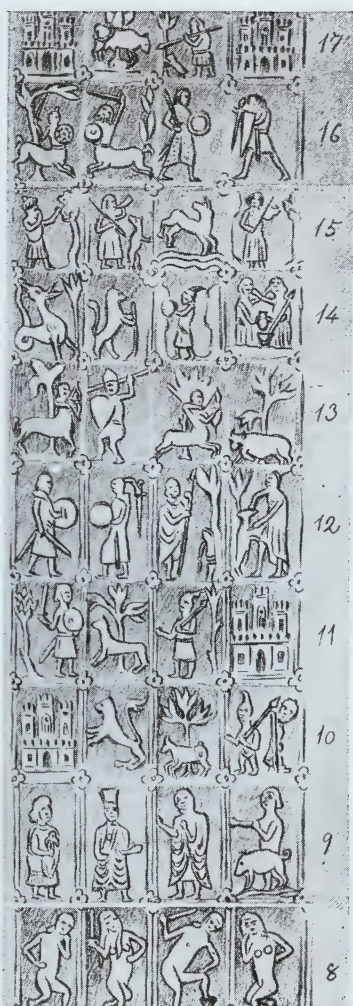 17
16
15
14
13
12
11
10
9
8